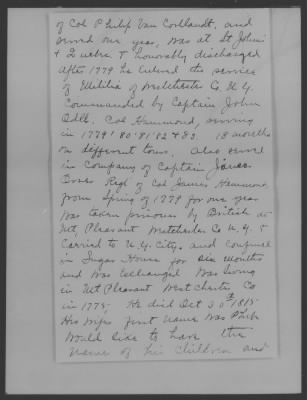 of Col Philip Van Cortlandt, and
served one year, was at St Johns
& Quebec & honorably discharged
After 1779 he entered the service
of Militia of Westchester Co. N.Y.
Commanded by Captain John
Odll. Col Hammond, serving
in 1779 '80 '81 '82 & 83. 18 months
on different tours. Also served
in Company of Captain James
Regt of Col James Hammond
from Spring of 1779 for one year
Was taken prisoner by British at
Mt. Pleasant Westchester Co N.Y. &
Carried to N.Y. City, and confined
in Sugar House for six months
and was exchanged Was living
in Mt Pleasant West Chester Co
in 1775. He died Oct 30th 1815
His wifes first name was
Would like to have the
names of his children and